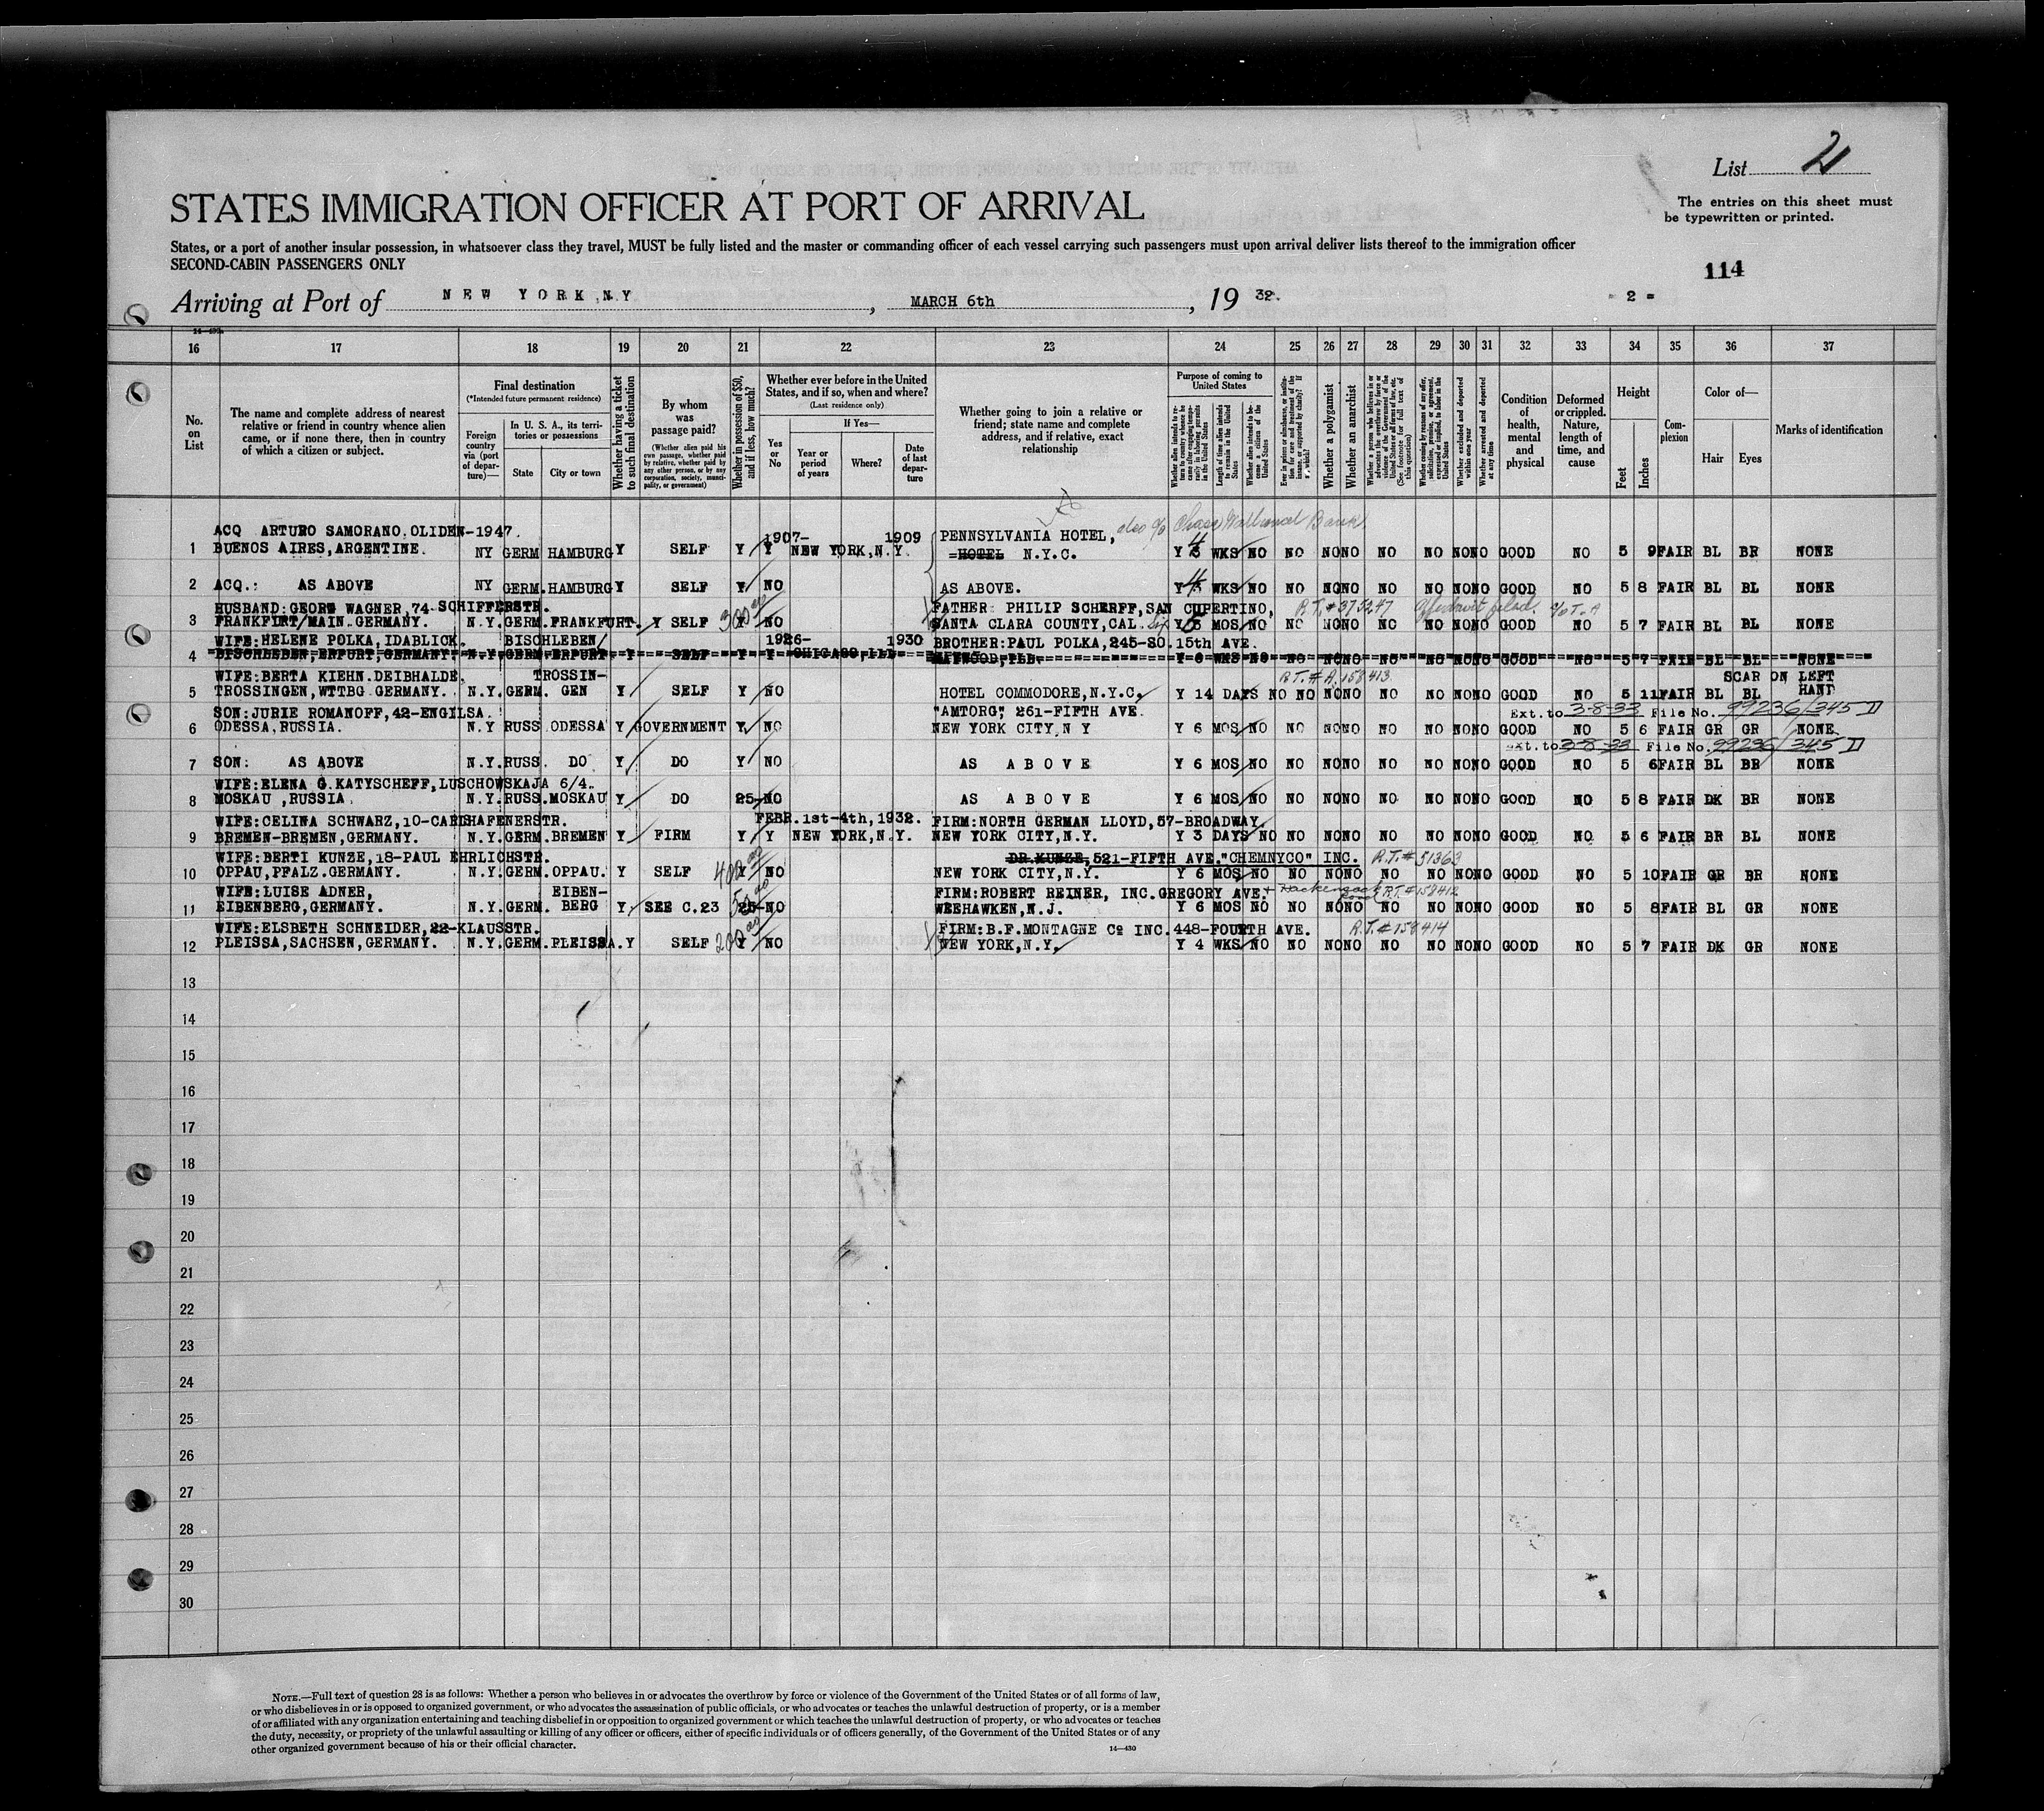 List 2
STATES IMMIGRATION OFFICER AT PORT OF ARRIVAL
The entries on this sheet must
be typewritten or printed.
States, or a port of another insular possession, in whatsoever class they travel, MUST be fully listed and the master or commanding officer of each vessel carrying such passengers must upon arrival deliver lists thereof to the immigration officer
SECOND-CABIN PASSENGERS ONLY
114
Arriving at Port of NEW YORK,N.Y, MARCH 6th, 19 32.
- 2 =
16 17 18 19 20 21 22 23 24 25 26 27 28 29 30 31 32 33 34 35 36 37
No. on List
The name and complete address of nearest relative or friend in country whence alien came, or if none there, then in country of which a citizen or subject.
Final destination
(*Intended future permanent residence)
Foreign country via (port of departure)—
In U. S. A., its territories or possessions
State
City or town
Whether having a ticket to such final destination
By whom was passage paid?
(Whether alien paid his own passage, whether paid by relative, whether paid by any other person, or by any corporation, society, municipality, or government)
Whether in possession of $50, and if less, how much?
Whether ever before in the United States, and if so, when and where?
(Last residence only)
Yes or No
If Yes—
Year or period of years
Where?
Date of last departure
Whether going to join a relative or friend; state name and complete address, and if relative, exact relationship
Purpose of coming to United States
Length of time alien intends to remain in the United States
Whether alien intends to become a citizen of the United States
Whether a polygamist
Whether an anarchist
Whether excluded and deported within one year
Whether arrested and deported at any time
Condition of health, mental and physical
Deformed or crippled. Nature, length of time, and cause
Height
Feet
Inches
Complexion
Color of—
Hair
Eyes
Marks of identification
ACQ ARTURO SAMORANO.OLIDEN-1947. 1907- 1909 PENNSYLVANIA HOTEL, also c/o Chase National Bank
1 BUENOS AIRES,ARGENTINE. NY GERM HAMBURG Y SELF Y Y NEW YORK,N.Y. =HOTEL N.Y.C. Y 4 WKS NO NO NO NO NO NO NO NO GOOD NO 5 9 FAIR BL BR NONE
2 ACQ.: AS ABOVE NY GERM.HAMBURG Y SELF Y NO AS ABOVE. Y 4 WKS NO NO NO NO NO NO NO NO GOOD NO 5 8 FAIR BL BL NONE
HUSBAND:GEORG WAGNER,74-SCHIFFERSTR. 300 FATHER: PHILIP SCHERFF,SAN CUPERTINO, Affidavit filed.
3 FRANKFURT/MAIN.GERMANY. N.Y.GERM.FRANKFURT. Y SELF Y NO SANTA CLARA COUNTY,CAL. Y 6 MOS NO NO NO NO NO NO NO NO GOOD NO 5 7 FAIR BL BL NONE
WIFE:HELENE POLKA,IDABLICK. BISCHLEBEN/ 1926- 1930 BROTHER:PAUL POLKA,245-SO.15th AVE.
4 BISCHLEBEN,ERFURT,GERMANY. N.Y.GERM.ERFURT. Y SELF Y Y CHICAGO,ILL NO NO NO NO NO NO NO NO GOOD NO 5 7 FAIR BL BL NONE
WIFE:BERTA KIEHN.DEIBHALDE. TROSSIN- R.T.# A.158413 SCAR ON LEFT
5 TROSSINGEN,WTTBG GERMANY. N.Y.GERM. GEN Y SELF Y NO HOTEL COMMODORE,N.Y.C. Y 14 DAYS NO NO NO NO NO NO NO NO GOOD NO 5 11 FAIR BL BL HAND
SON:JURIE ROMANOFF,42-ENGILSA. "AMTORG", 261-FIFTH AVE. Ext.to 3-8-33 File No. 99236/345 D
6 ODESSA,RUSSIA. N.Y RUSS.ODESSA Y GOVERNMENT Y NO NEW YORK CITY,N Y Y 6 MOS NO NO NO NO NO NO NO NO GOOD NO 5 6 FAIR GR GR NONE
Ext.to 3-8-33 File No.99236/345 D
7 SON: AS ABOVE N.Y.RUSS. DO Y DO Y NO AS ABOVE Y 6 MOS NO NO NO NO NO NO NO NO GOOD NO 5 6 FAIR BL BR NONE
WIFE:ELENA G.KATYSCHEFF,LUSCHOWSKAJA 6/4.
8 MOSKAU ,RUSSIA. N.Y.RUSS.MOSKAU Y DO 25- NO AS ABOVE Y 6 MOS NO NO NO NO NO NO NO NO GOOD NO 5 8 FAIR DK BR NONE
WIFE:CELINA SCHWARZ,10-CARLSHAFENERSTR. FEBR.1st-4th,1932. FIRM:NORTH GERMAN LLOYD,57-BROADWAY.
9 BREMEN-BREMEN,GERMANY. N.Y.GERM.BREMEN Y FIRM Y Y NEW YORK,N.Y. NEW YORK CITY,N.Y. Y 3 DAYS NO NO NO NO NO NO NO NO GOOD NO 5 6 FAIR BR BL NONE
WIFE:BERTI KUNZE,18-PAUL EHRLICHSTR. 400 DR.KUNZE,521-FIFTH AVE."CHEMNYCO" INC. R.T.#51363
10 OPPAU,PFALZ.GERMANY. N.Y.GERM.OPPAU. Y SELF Y NO NEW YORK CITY,N.Y. Y 6 MOS NO NO NO NO NO NO NO NO GOOD NO 5 10 FAIR GR BR NONE
WIFE:LUISE ADNER, EIBEN- FIRM:ROBERT REINER, INC.GREGORY AVE. + Hackensack Road R.T.#158412
11 EIBENBERG,GERMANY. N.Y.GERM. BERG Y SEE C.23 25- NO WEEHAWKEN,N.J. Y 6 MOS NO NO NO NO NO NO NO NO GOOD NO 5 8 FAIR BL GR NONE
WIFE:ELSBETH SCHNEIDER,22-KLAUSSTR. 200 FIRM:B.F.MONTAGNE Co INC.448-FOURTH AVE. R.T.#158414
12 PLEISSA,SACHSEN,GERMANY. N.Y.GERM.PLEISSA.Y SELF Y NO NEW YORK,N.Y. Y 4 WKS NO NO NO NO NO NO NO NO GOOD NO 5 7 FAIR DK GR NONE
13
14
15
16
17
18
19
20
21
22
23
24
25
26
27
28
29
30
NOTE.—Full text of question 28 is as follows: Whether a person who believes in or advocates the overthrow by force or violence of the Government of the United States or of all forms of law,
or who disbelieves in or is opposed to organized government, or who advocates the assassination of public officials, or who advocates or teaches the unlawful destruction of property, or is a member
of or affiliated with any organization entertaining and teaching disbelief in or opposition to organized government or which teaches the unlawful destruction of property, or who advocates or teaches
the duty, necessity, or propriety of the unlawful assaulting or killing of any officer or officers, either of specific individuals or of officers generally, of the Government of the United States or of any
other organized government because of his or their official character.
14—430